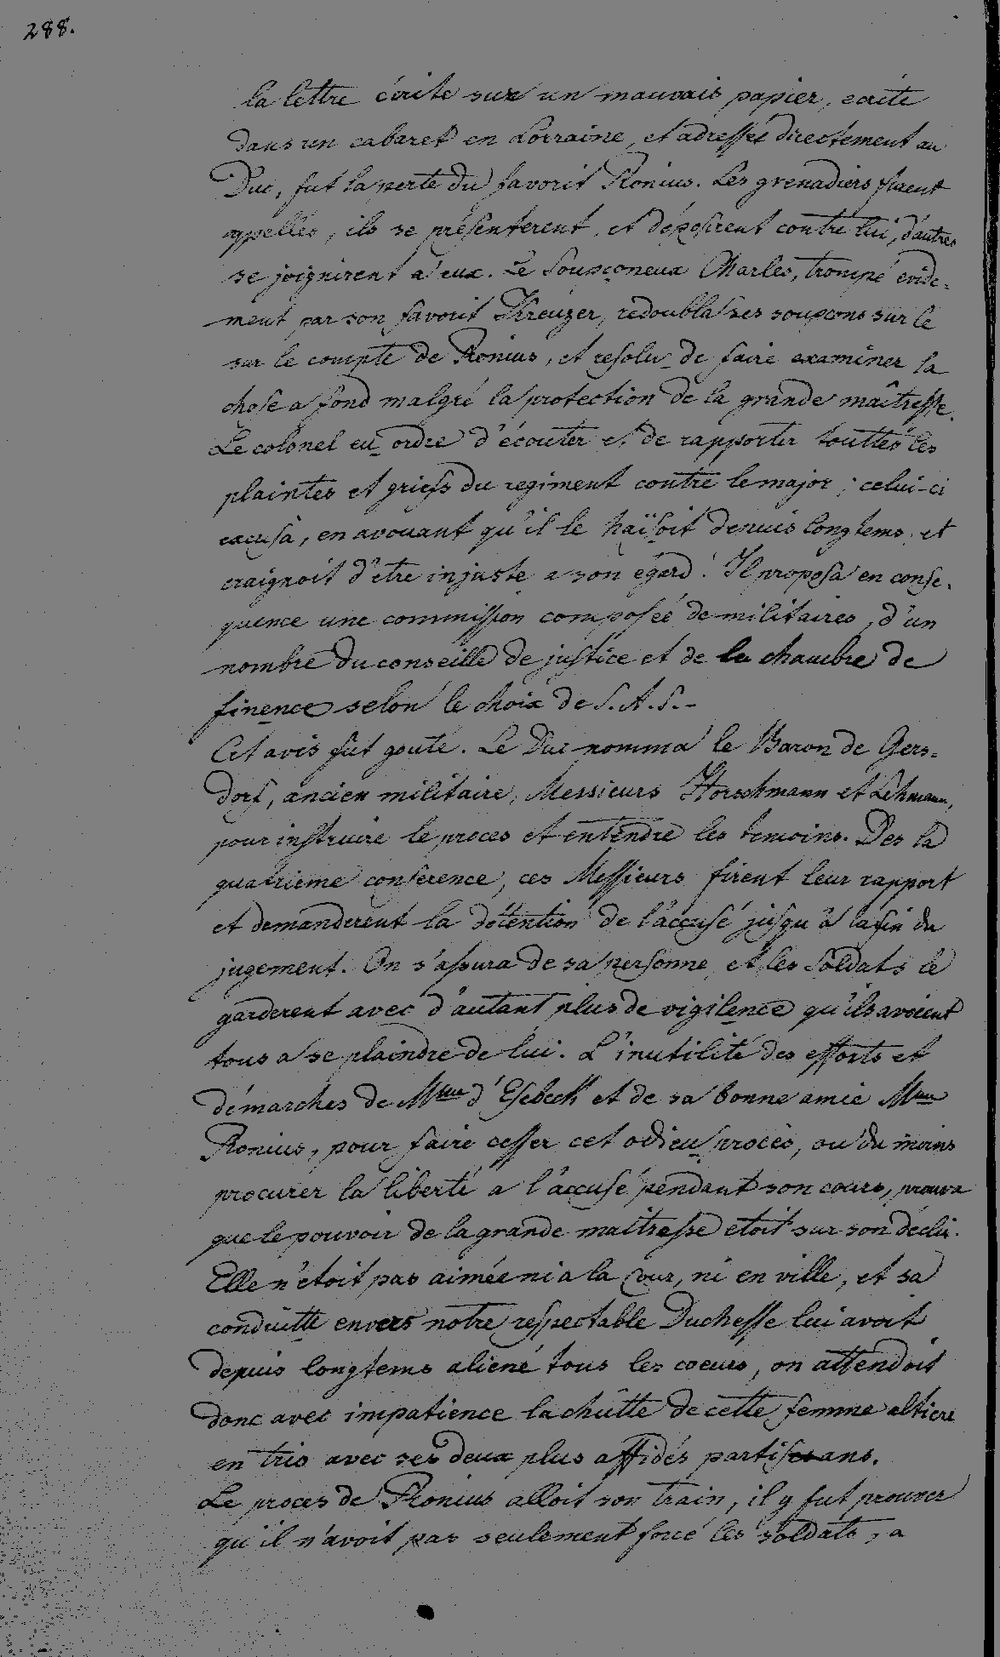 288.
la lettre écrite sur un mauvais papier, ecrite
dans un cabaret en Lorraine, et adressée directement au
Duc, fut la perte du favorit Ronius. Les grenadiers furent
appellés, ils se présenterent, et déposirent contre lui, d'autres
se joignirent a eux. Le Soupçoneux Charles, trompé evide-
ment par son favorit Kreuzer, redoubla ses soupcons sur le
sur le compte de Ronius, et resolu de faire examiner la
chose a fond malgré la protection de la grande maîtresse.
Le colonel eu ordre d'écouter et de rapporter touttes les
plaintes et griefs du regiment contre le major; celui-ci
excusà, en avouant qu'il le haïsoit depuis longtems, et
craignoit d'etre injuste a son égard. Il proposa en conse-
quence une commission composée de militaires, d'un
nombre du conseille de justice et de la chambre de
finence selon le choix de S. A. S.-
Cet avis fut gouté. Le Duc nomma le Baron de Gers-
dorf, ancien militaire, Messieurs Horschmann et Lehmann,
pour instruire le proces et entendre les temoins. Des la
quatrieme conference, ces Messieurs firent leur rapport
et demanderent la détention de l'accusé jusqu'à la fin du
jugement. On s'assura de sa personne, et les Soldats le
garderent avec d'autant plus de vigilence qu'ils avoient
tous a se plaindre de lui. L'inutilité des efforts et
démarches de Mme d'Esebeck et de sa bonne amie Mme
Ronius, pour faire cesser cet odieu procès, ou du moins
procurer la liberté a l'accusé pendant son cours, prouva
que le pouvoir de la grande maitresse etoit sur son déclin.
Elle n'etoit pas aimée ni a la Cour, ni en ville, et sa
conduitte envers notre respectable Duchesse lui avoit
depuis longtems aliené tous les coeurs, on attendoit
donc avec impatience la chûtte de cette femme altiere
en trio avec ses deux plus affidés partisans.
Le proces de Ronius alloit son train, il y fut prouver
qu'il n'avoit pas seulement forcé les soldats, a